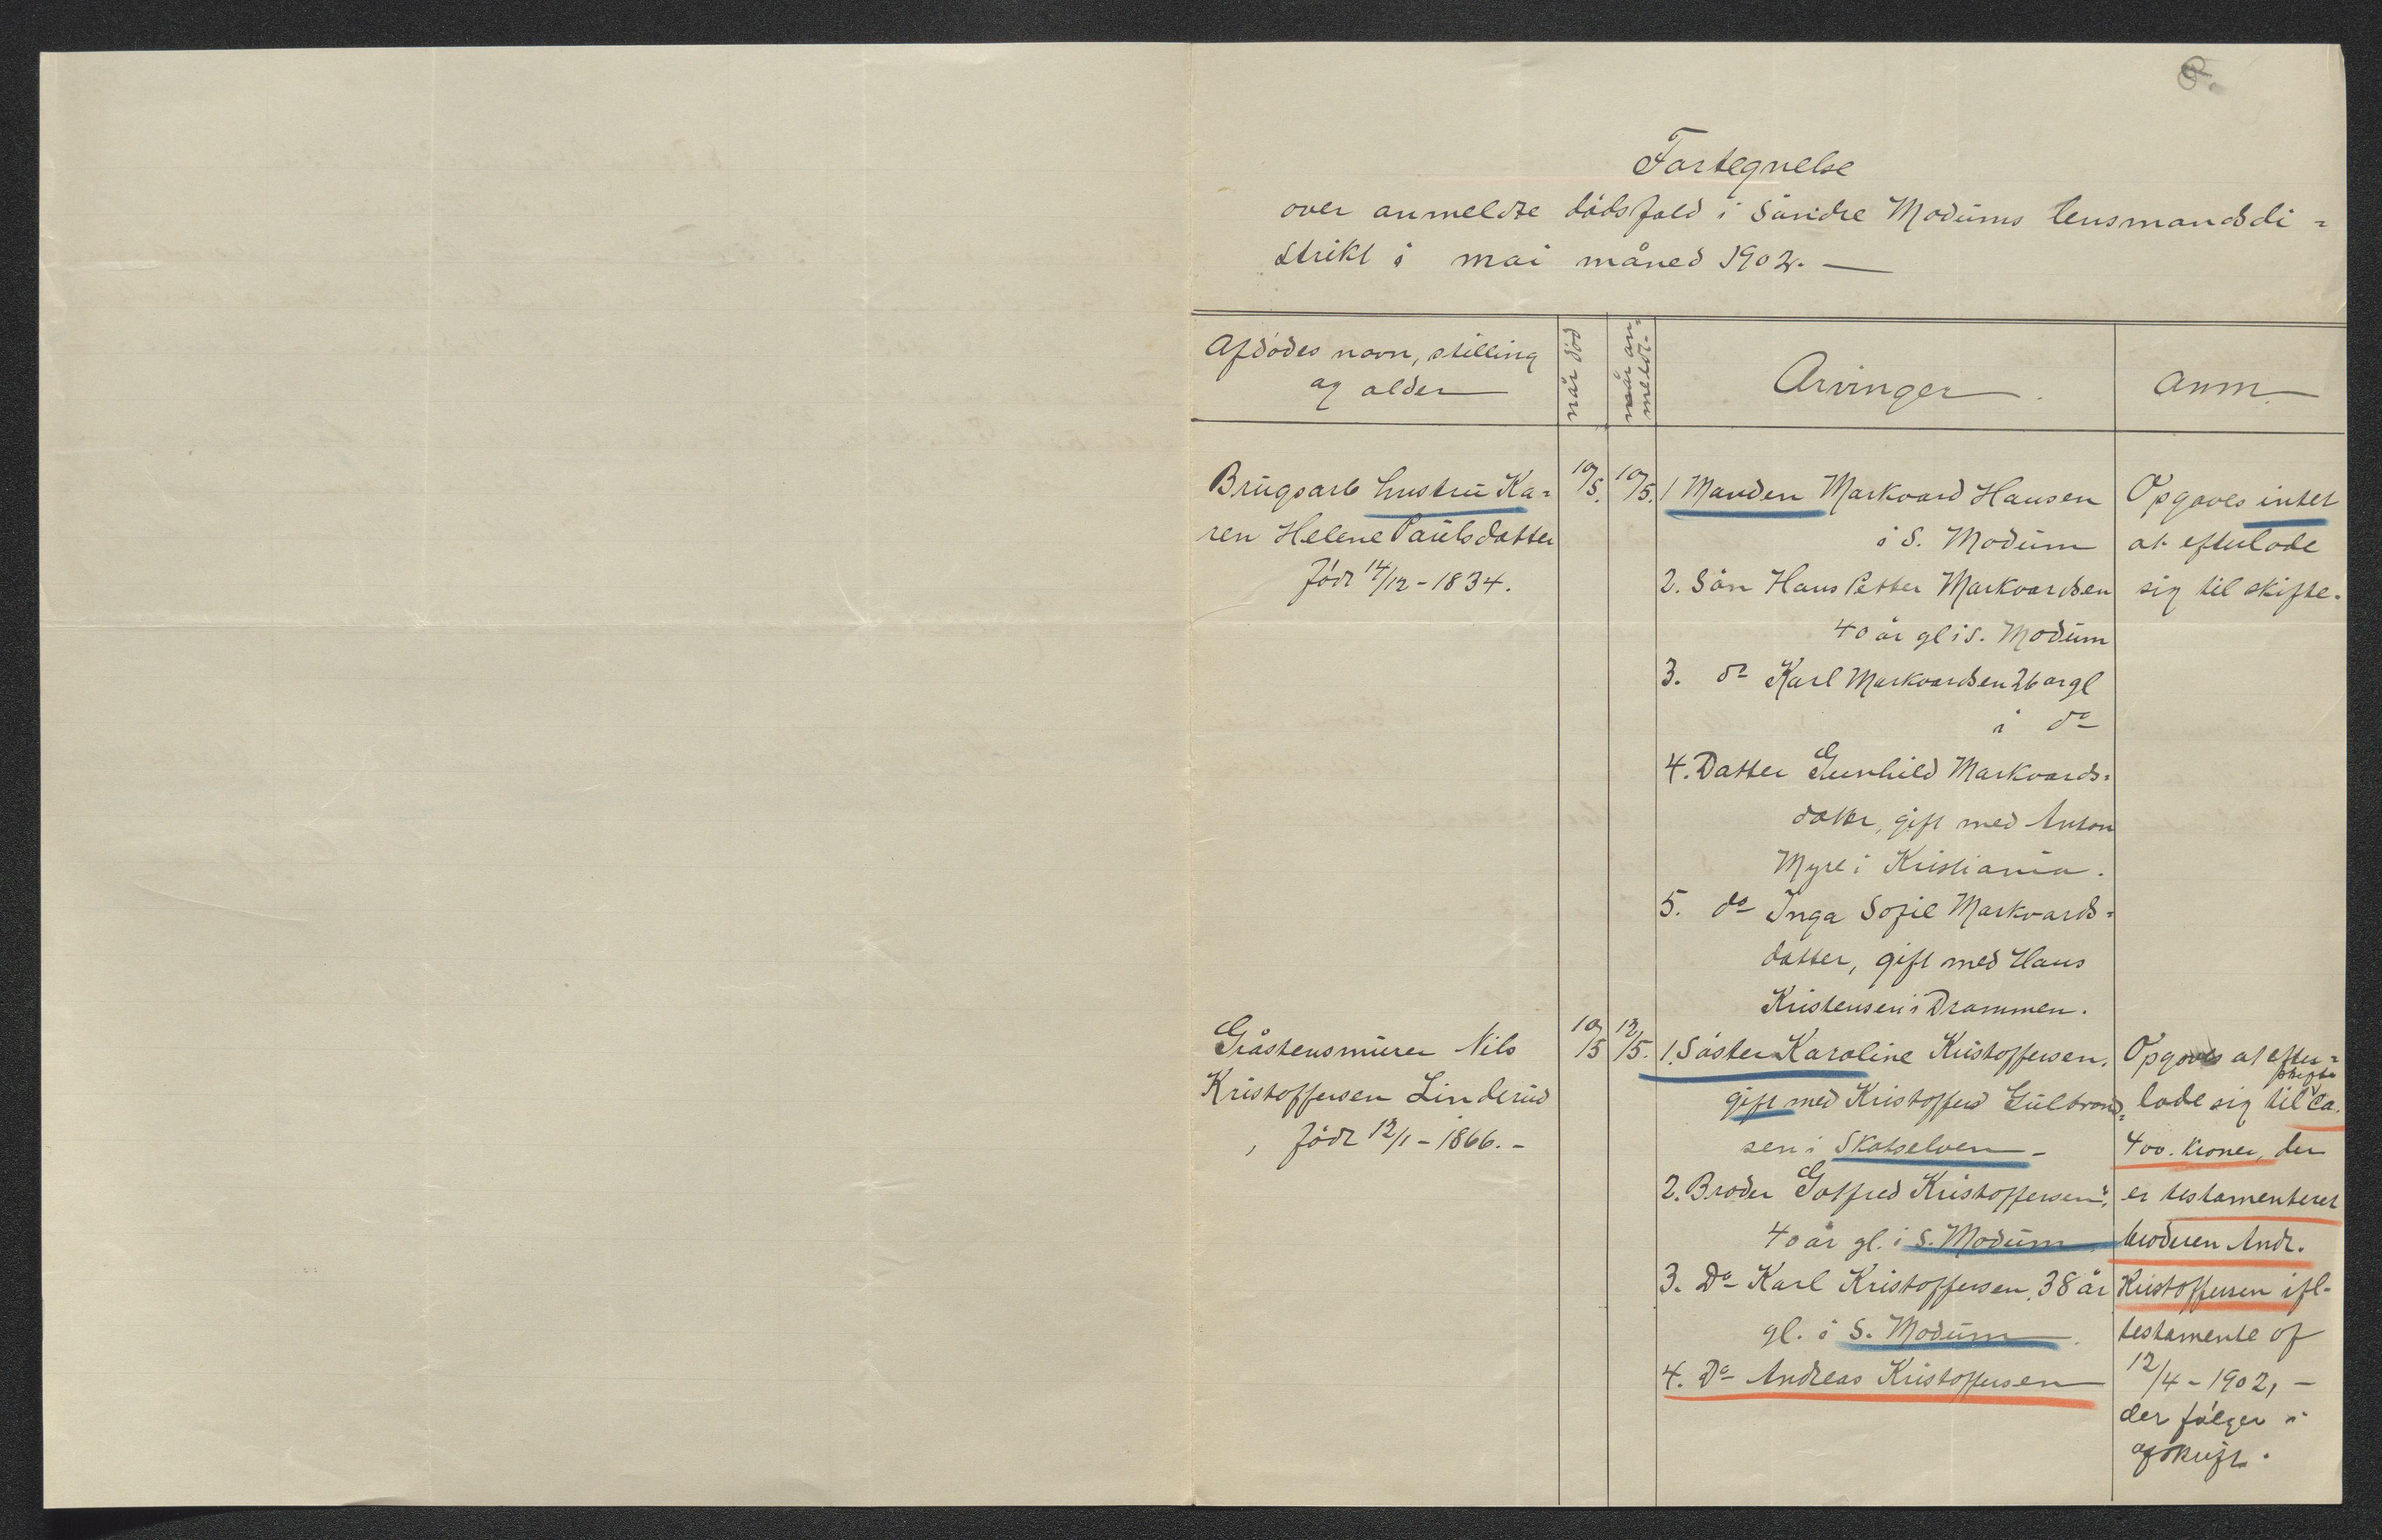 8.
Fortegnelse
over anmeldte dödsfald i Söndre Modums lensmandsdi=
strikt i mai måned 1902. —
Afdödes navn, stilling
og alder
når död
når an=
meldt.
Arvinger.
Anm.
Brugsarb hustru Ka=
ren Helene Paulsdatter
födt 14/12 - 1834.
10/5.
10/5.
1 Manden Markvard Hansen
i S. Modum
2. Sön Hans Petter Markvardsen
40 år gl i S. Modum
3. do Karl Markvardsen 26 år gl
i do
4. Datter Gunhild Markvards=
datter, gift med Anton
Myre i Kristiania.
5. do Inga Sofie Markvards=
datter, gift med Hans
Kristensen i Drammen.
Opgaves intet
at efterlade
sig til skifte.
Gråstensmurer Nils
Kristoffersen Linderud
, födt 12/1 - 1866. -
10/5
12/5.
1. Söster Karoline Kristoffersen,
gift med Kristoffer Gulbrand=
sen i Skotselven -
2. Broder Gotfred Kristoffersen,
40 år gl. i S. Modum.
3. Do Karl Kristoffersen, 38 år
gl. i S. Modum.
4. Do Andreas Kristoffersen
Opgaves at efter=
lade sig til skifte ca.
400. kroner, der
er testamenteret
broderen Andr.
Kristoffersen ifl.
testamente af
12/4 - 1902, -
der fölger i
afskrift.